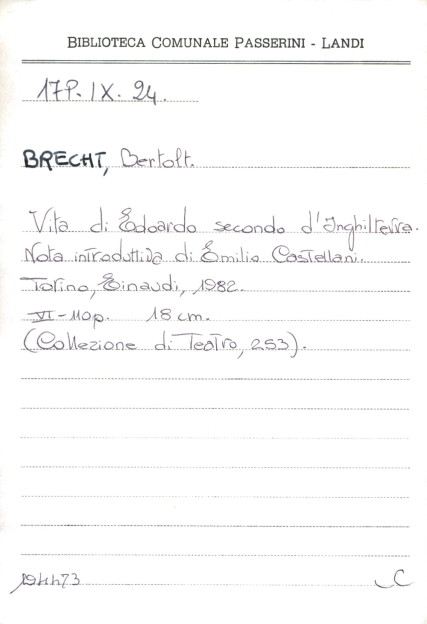 BIBLIOTECA COMUNALE PASSERINI - LANDI
17P. IX. 24.
BRECHT, Bertolt.
Vita di Edoardo secondo d'Inghilterra.
Nota introduttiva di Emilio Castellani.
Torino, Einaudi, 1982.
VI-110p. 18 cm.
(Collezione di Teatro, 253).
194473
C